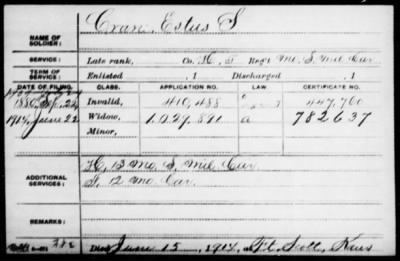 NAME OF SOLDIER: Crain, Estus S
SERVICE: Late rank, Co. H, 13 Reg't Mo. S. Mil. Cav.
TERM OF SERVICE: Enlisted , 1 Discharged , 1
DATE OF FILING. CLASS. APPLICATION NO. LAW. CERTIFICATE NO.
1880, Sep. 22 Invalid, 410,488 447,760
1914, June 22 Widow, 1.029.891 a 782637
Minor,
ADDITIONAL SERVICES: H, 13 Mo. S. Mil Cav
12 Mo. Cav.
REMARKS:
Died June 15, 1914, Ft. Scott, Kans